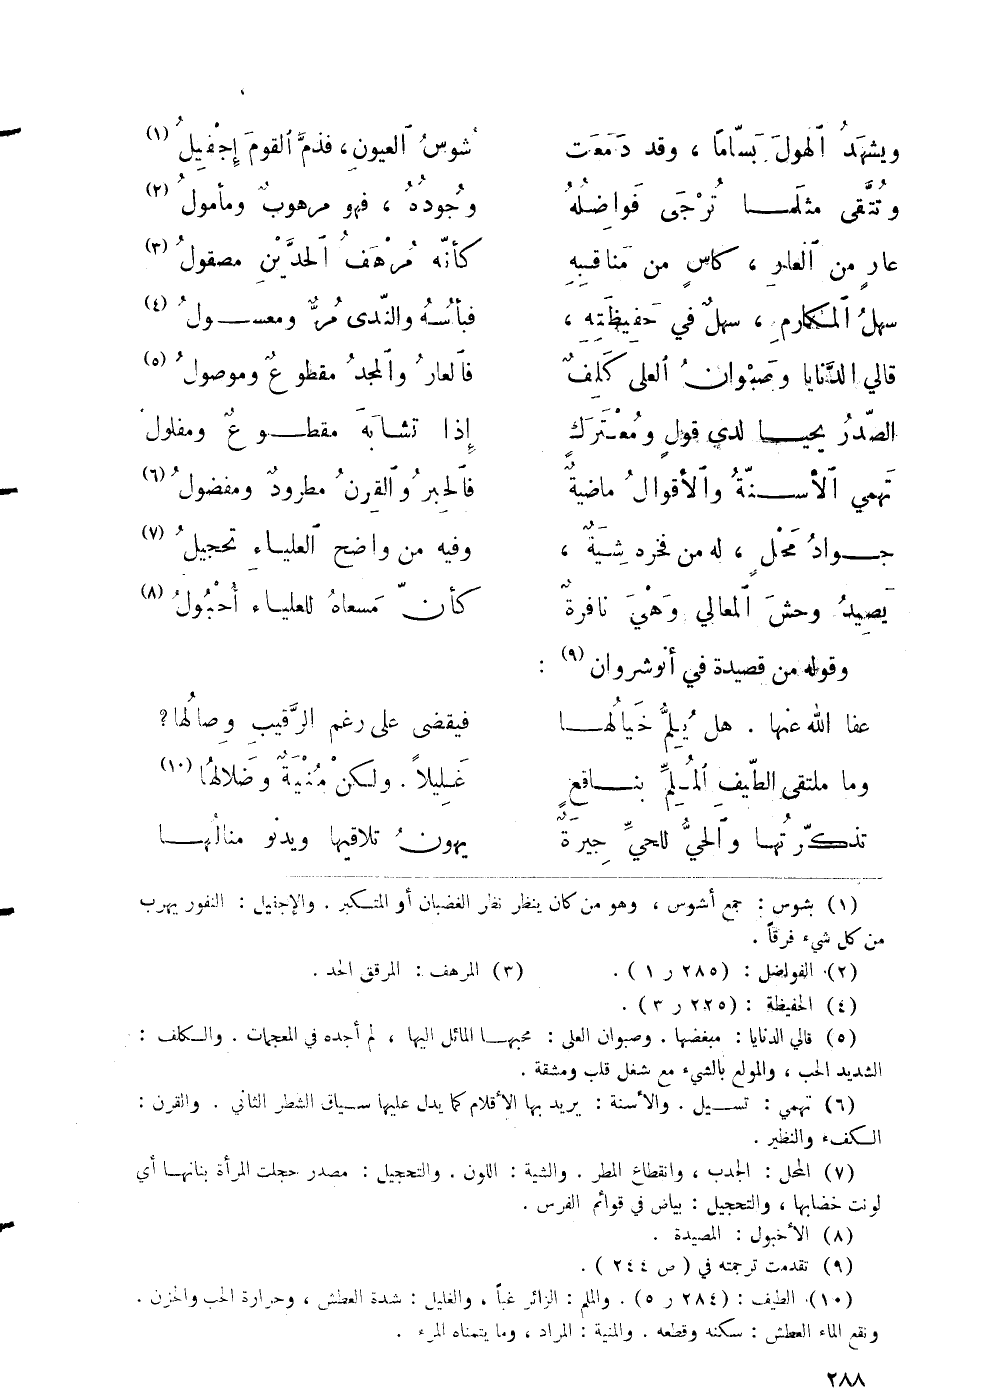 ويشهَدُ ٱلهولَ بَسّاماً ، وقد دَمَعَت شُوسُ ٱلعيونِ، فذمَّ ٱلقومَ إِجْفيلُ (١)
وتُتَّقى مثلَمـا تُرْجَى فَواضِلُهُ وُجُودُهُ ، فهو مرهوبٌ ومأمولُ (٢)
عارٍ من ٱلعارِ ، كاسٍ من مَناقبِهِ كأنّه مُرْهَفُ ٱلحدَّيْنِ مصقولُ (٣)
سهلُ ٱلمكارمِ ، سهلٌ في حَفِيظَتِهِ ، فبأسُـهُ والنّدى مُرٌّ ومعسـولُ (٤)
قالي الدَّنايا وصَبْوانُ ٱلعلى كَلِفٌ فٱلعارُ وٱلمجدُ مقطوعٌ وموصولُ (٥)
الصّدرُ يحيـا لدى قولٍ ومُعْتَرَكٍ إِذا تشابَهَ مقطـوعٌ ومفلولُ
تَهمي ٱلأسـنّةُ وٱلأقوالُ ماضيةٌ فٱلحِبرُ وٱلقِرنُ مطرودٌ ومفضولُ (٦)
جـوادُ مَحْلٍ ، له من فخره شِيَةٌ ، وفيه من واضح ٱلعليـاءِ تحجيلُ (٧)
يَصِيدُ وحشَ ٱلمعالي وَهْيَ نافرةٌ كأنّ مَسعاهُ للعليـاء أُحْبُولُ (٨)
وقوله من قصيدة في أنوشروان (٩) :
عفا الله عنها . هل يُلِمُّ خَيالُهـا فيقضى على رغم الرَّقيبِ وِصالُها؟
وما ملتقى الطّيفِ ٱلمُلِمِّ بنـافعٍ غَليلاً . ولكنْ مُنْيَةٌ وضَلالُها (١٠)
تذكّرتُها وٱلحيُّ للحيِّ جِيرَةٌ يهونُ تلاقيها ويدنو منالُهـا
(١) شوس : جمع أشوس ، وهو من كان ينظر نظر الغضبان أو المتكبر . والإجفيل : النفور يهرب
من كل شيء فرقاً .
(٢) الفواضل : (٢٨٥ ر ١) . (٣) المرهف : المرقق الحد .
(٤) الحفيظة : (٢٢٥ ر ٣) .
(٥) قالي الدنايا : مبغضها . وصبوان العلى : محبهـا المائل اليها ، لم أجده في المعجمات . والكلف :
الشديد الحب ، والمولع بالشيء مع شغل قلب ومشقة .
(٦) تهمي : تسيل . والأسنة : يريد بها الأقلام كما يدل عليها سياق الشطر الثاني . والقرن :
الكفء والنظير .
(٧) المحل : الجدب ، وانقطاع المطر . والشية : اللون . والتحجيل : مصدر حجلت المرأة بنانهـا أي
لونت خضابها ، والتحجيل : بياض في قوائم الفرس .
(٨) الأحبول : المصيدة .
(٩) تقدمت ترجمته في (ص ٢٤٤) .
(١٠) الطيف : (٢٨٤ ر ٥) . والملم : الزائر غباً ، والغليل : شدة العطش ، وحرارة الحب والحزن .
ونقع الماء العطش : سكنه وقطعه . والمنية : المراد ، وما يتمناه المرء .
٢٨٨